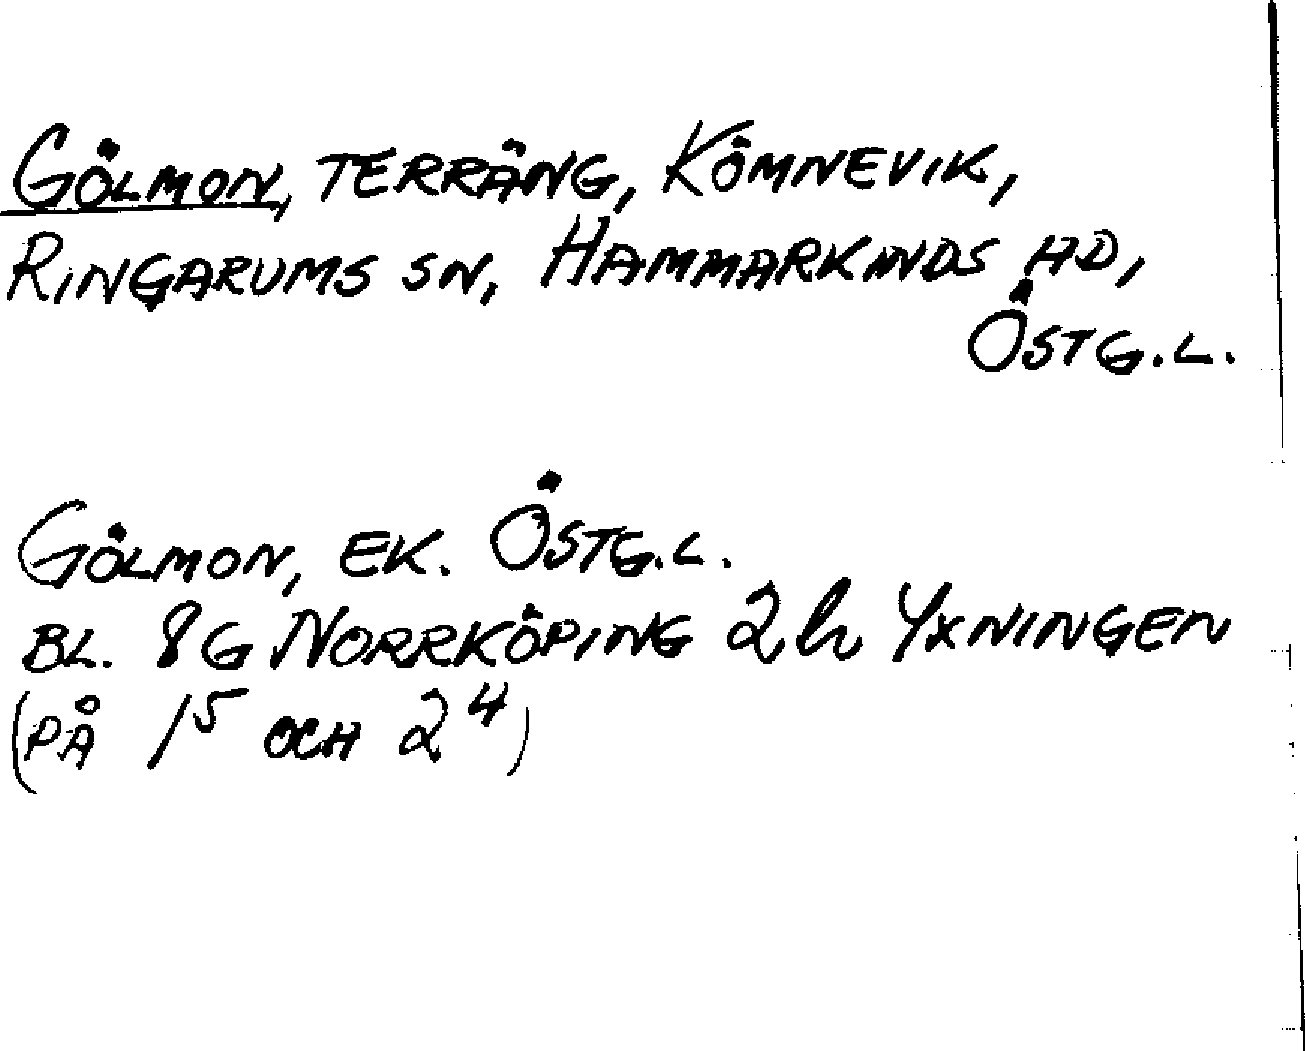 GÖLMON, TERRÄNG, KÖMNEVIK,
RINGARUMS SN, HAMMARKINDS HD,
ÖSTG.L.
GÖLMON, EK. ÖSTG.L.
BL. 8G NORRKÖPING 2h YXNINGEN
(PÅ 1⁵ OCH 2⁴)